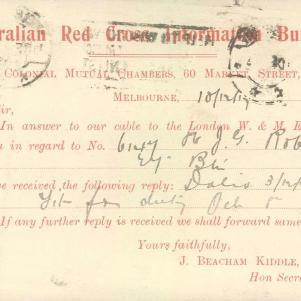 ralian Red Cross Information Bu
Colonial Mutual Chambers, 60 Market Street,
Melbourne, 10/12/17
ir,
In answer to our cable to the London W. & M. E
u in regard to No. 6147 J. G. Rob
Bn
ve received the following reply: 3/12/
Fit for duty Oct
If any further reply is received we shall forward same
Yours faithfully,
J. BEACHAM KIDDLE,
Hon Secre